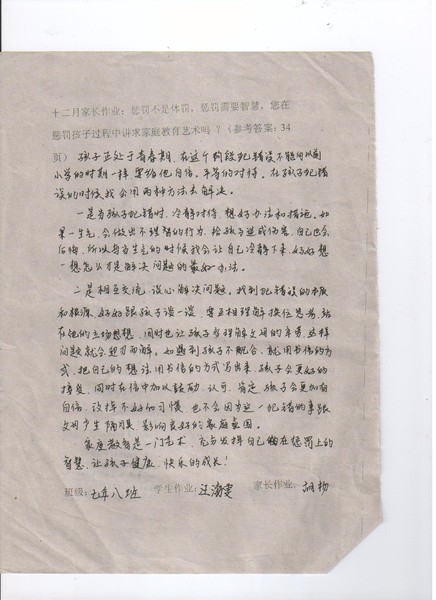 十二月家长作业：惩罚不是体罚，惩罚需要智慧，您在
惩罚孩子过程中讲求家庭教育艺术吗？（参考答案：34
页）孩子正处于青春期，在这个阶段犯错误不能向以前
小学的时期一样，要给他自信、平等的对待。在孩子犯错
误的时候，我会用两种方法去解决。
一是当孩子犯错时，冷静对待，想好办法和措施。如
果一生气，会做出不理智的行为，给孩子造成伤害，自己也会
后悔，所以每当生气的时候我会让自己冷静下来，好好想
一想怎么才是解决问题的最好办法。
二是相互交流，谈心解决问题。找到犯错误的本质
和根源，好好跟孩子谈一谈，要互相理解换位思考，站
在他的立场想想，同时也让孩子多理解父母的辛苦，这样
问题就会迎刃而解。如遇到孩子不配合，就用书信的方
式，把自己的想法用书信的方式写出来，孩子会更好的
接受，同时在信中加以鼓励、认可、肯定，孩子会更加有
自信，改掉不好的习惯，也不会因为这一犯错的事跟
父母产生隔阂，影响良好的家庭氛围。
家庭教育是一门艺术，充分发挥自己在惩罚上的
智慧，让孩子健康、快乐的成长！
班级：七年八班 学生作业：汪瀚雯 家长作业：胡杨